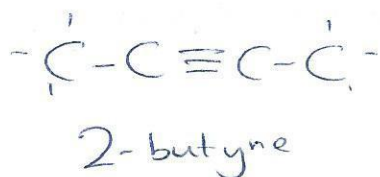 C-C≡C-C
2-butyne